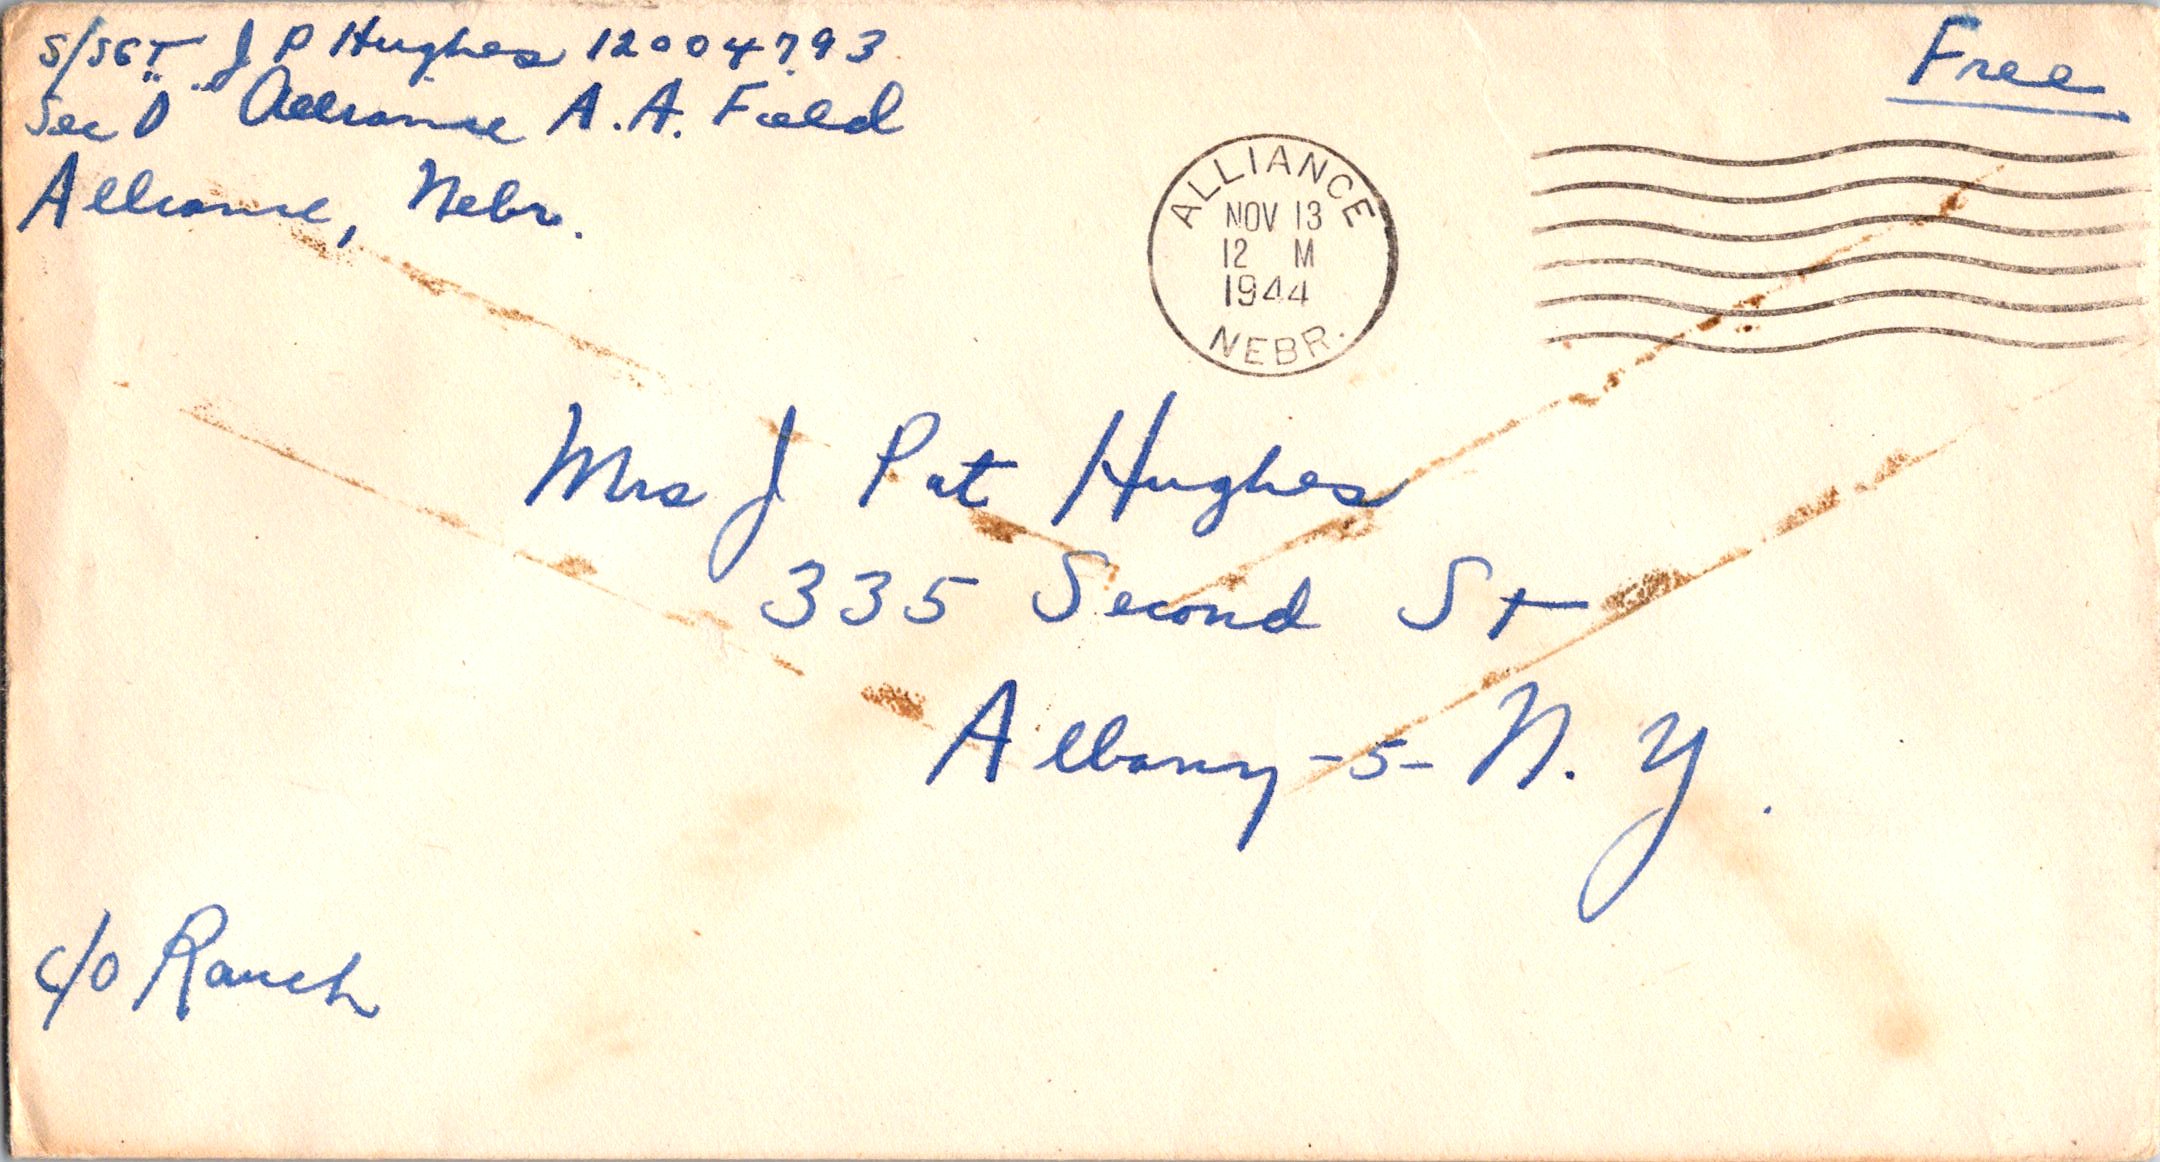 S/SGT J P Hughes 12004793
Sec "D" Alliance A.A. Field
Alliance, Nebr.
Free
ALLIANCE
NOV 13
12 M
1944
NEBR.
Mrs J Pat Hughes
335 Second St
Albany -5- N. Y.
c/o Rauch